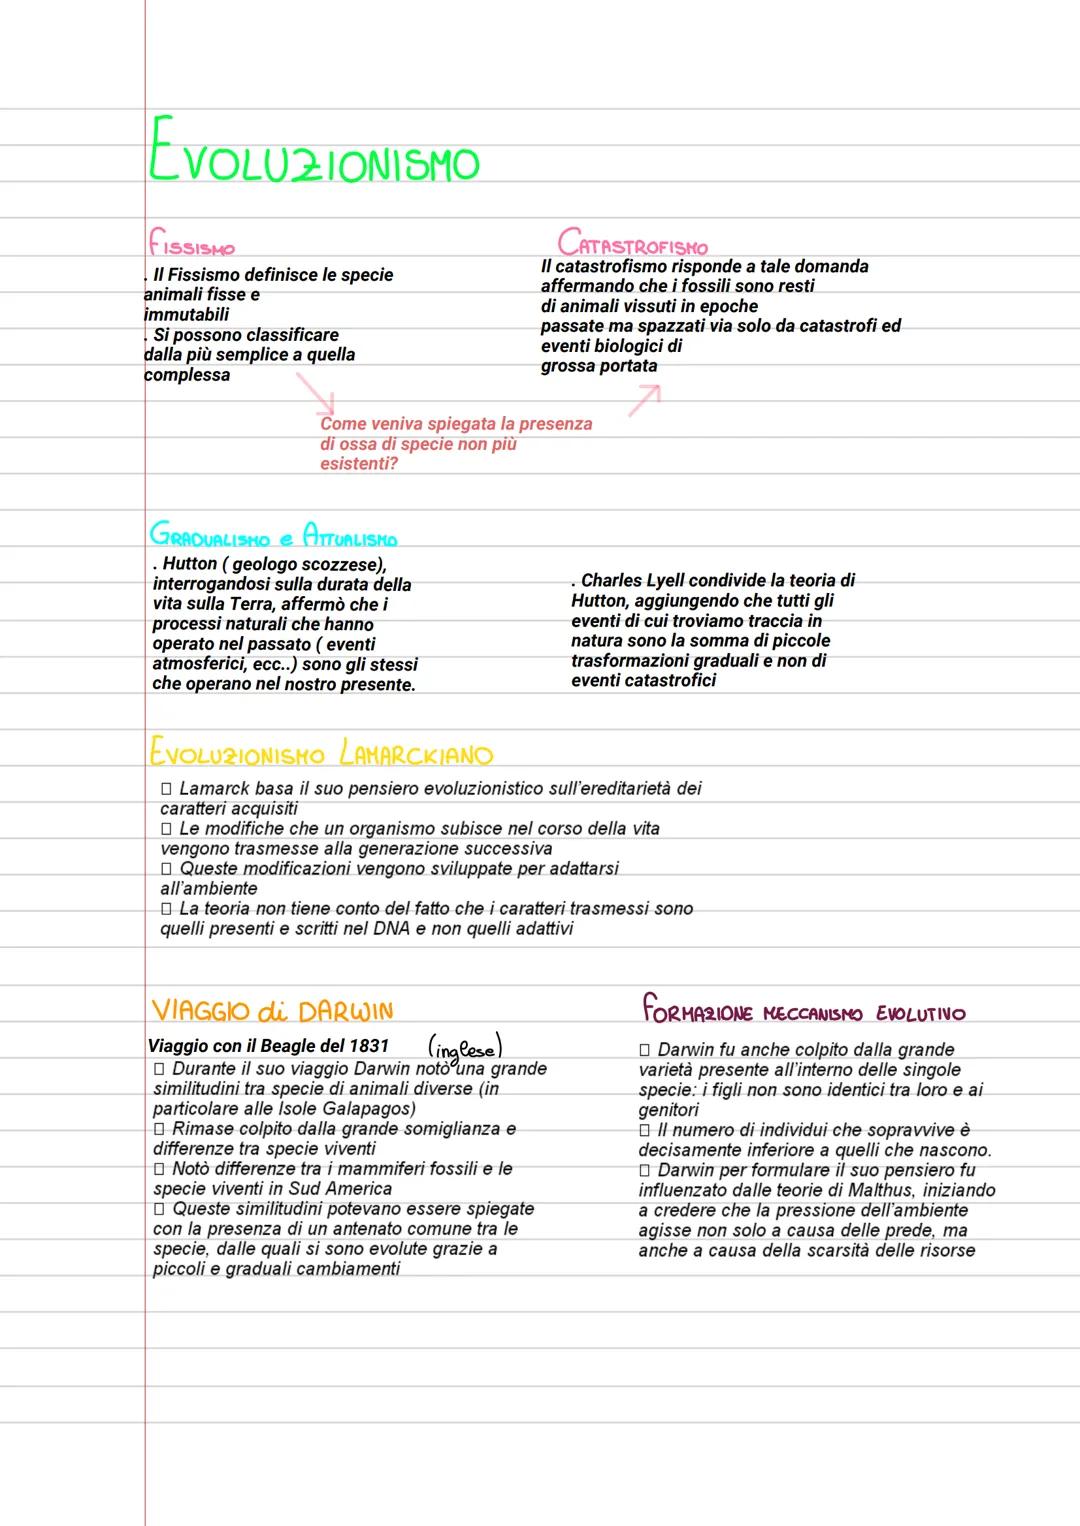 EVOLUZIONISMO
FISSISMO
. Il Fissismo definisce le specie
animali fisse e
immutabili
. Si possono classificare
dalla più semplice a quella
complessa
CATASTROFISMO
Il catastrofismo risponde a tale domanda
affermando che i fossili sono resti
di animali vissuti in epoche
passate ma spazzati via solo da catastrofi ed
eventi biologici di
grossa portata
Come veniva spiegata la presenza
di ossa di specie non più
esistenti?
GRADUALISMO e ATTUALISMO
. Hutton ( geologo scozzese),
interrogandosi sulla durata della
vita sulla Terra, affermò che i
processi naturali che hanno
operato nel passato ( eventi
atmosferici, ecc..) sono gli stessi
che operano nel nostro presente.
. Charles Lyell condivide la teoria di
Hutton, aggiungendo che tutti gli
eventi di cui troviamo traccia in
natura sono la somma di piccole
trasformazioni graduali e non di
eventi catastrofici
EVOLUZIONISMO LAMARCKIANO
□ Lamarck basa il suo pensiero evoluzionistico sull'ereditarietà dei
caratteri acquisiti
□ Le modifiche che un organismo subisce nel corso della vita
vengono trasmesse alla generazione successiva
□ Queste modificazioni vengono sviluppate per adattarsi
all'ambiente
□ La teoria non tiene conto del fatto che i caratteri trasmessi sono
quelli presenti e scritti nel DNA e non quelli adattivi
VIAGGIO di DARWIN
Viaggio con il Beagle del 1831 (inglese)
□ Durante il suo viaggio Darwin notò una grande
similitudini tra specie di animali diverse (in
particolare alle Isole Galapagos)
□ Rimase colpito dalla grande somiglianza e
differenze tra specie viventi
□ Notò differenze tra i mammiferi fossili e le
specie viventi in Sud America
□ Queste similitudini potevano essere spiegate
con la presenza di un antenato comune tra le
specie, dalle quali si sono evolute grazie a
piccoli e graduali cambiamenti
FORMAZIONE MECCANISMO EVOLUTIVO
□ Darwin fu anche colpito dalla grande
varietà presente all'interno delle singole
specie: i figli non sono identici tra loro e ai
genitori
□ Il numero di individui che sopravvive è
decisamente inferiore a quelli che nascono.
□ Darwin per formulare il suo pensiero fu
influenzato dalle teorie di Malthus, iniziando
a credere che la pressione dell'ambiente
agisse non solo a causa delle prede, ma
anche a causa della scarsità delle risorse